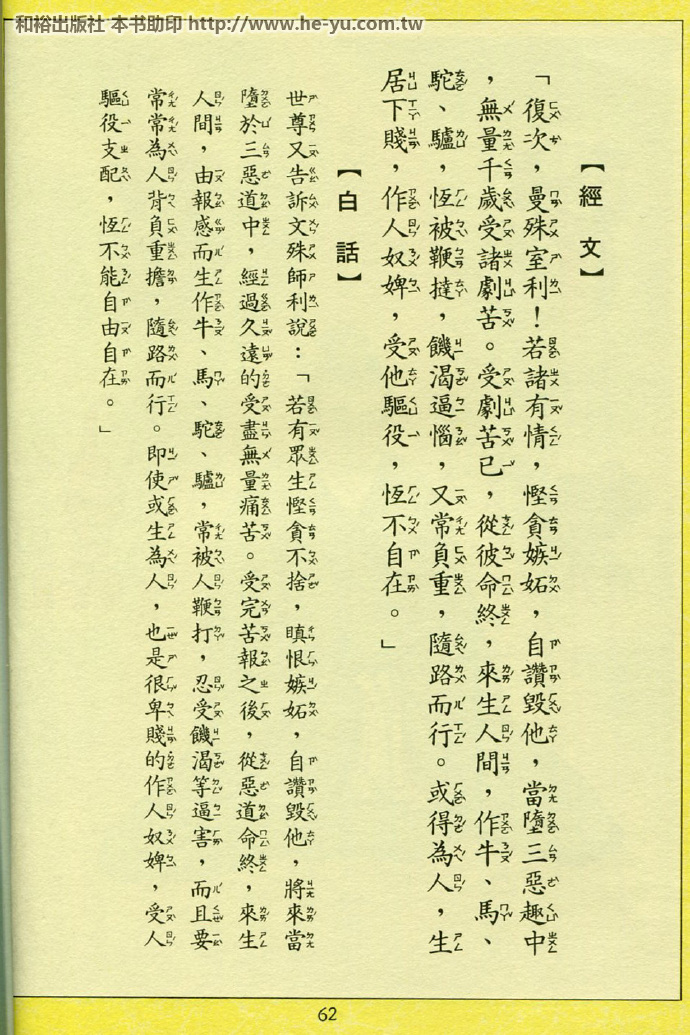 和裕出版社 本书助印 http://www.he-yu.com.tw
【經文】
「復次，曼殊室利！若諸有情，慳貪嫉妬，自讚毀他，當墮三惡趣中
，無量千歲受諸劇苦。受劇苦已，從彼命終，來生人間，作牛、馬、
駝、驢，恆被鞭撻，饑渴逼惱，又常負重，隨路而行。或得為人，生
居下賤，作人奴婢，受他驅役，恆不自在。」
【白話】
世尊又告訴文殊師利說：「若有眾生慳貪不捨，瞋恨嫉妬，自讚毀他，將來當
墮於三惡道中，經過久遠的受盡無量痛苦。受完苦報之後，從惡道命終，來生
人間，由報感而生作牛、馬、駝、驢，常被人鞭打，忍受饑渴等逼害，而且要
常常為人背負重擔，隨路而行。即使或生為人，也是很卑賤的作人奴婢，受人
驅役支配，恆不能自由自在。」
62